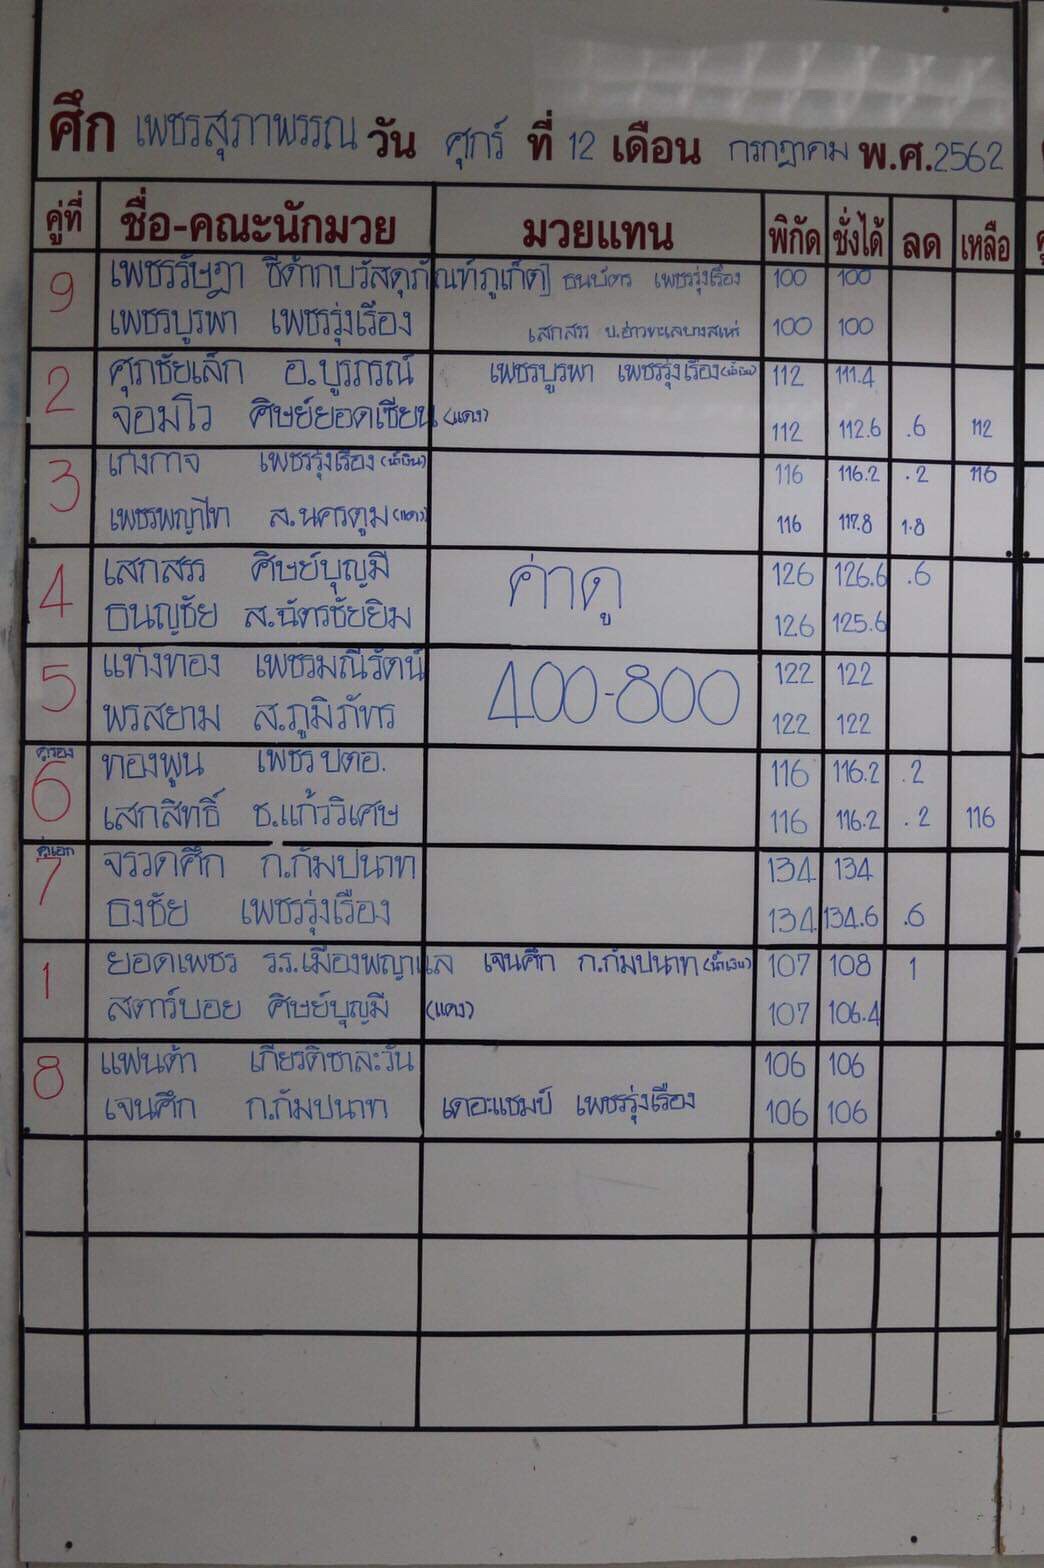 ศึก เพชรสุภาพรรณ วัน ศุกร์ ที่ 12 เดือน กรกฎาคม พ.ศ.2562
คู่ที่ ชื่อ-คณะนักมวย มวยแทน พิกัด ชั่งได้ ลด เหลือ
9 เพชรรัษฎา ซีต้ากบวัสดุภัณฑ์ภูเก็ต ธนบัตร เพชรรุ่งเรือง 100 100
เพชรบูรพา เพชรรุ่งเรือง เสกสรร 100 100
2 ศุภชัยเล็ก อ.บูรภรณ์ เพชรบูรพา เพชรรุ่งเรือง(น้ำเงิน) 112 111.4
จอมโว ศิษย์ยอดเซียน (แดง) 112 112.6 .6 112
3 เก่งกาจ เพชรรุ่งเรือง(น้ำเงิน) 116 116.2 .2 116
เพชรพญาไท ส.นครตูม(แดง) 116 117.8 1.8
4 เสกสรร ศิษย์บุญมี ค่าดู 126 126.6 .6
ธนญชัย ส.ฉัตรชัยยิม 126 125.6
5 แท่งทอง เพชรมณีรัตน์ 400-800 122 122
พรสยาม ส.ภูมิภัทร 122 122
คู่รอง
6 ทองพูน เพชรปตอ. 116 116.2 .2
เสกสิทธิ์ ช.แก้ววิเศษ 116 116.2 .2 116
คู่เอก
7 จรวดศึก ก.กัมปนาท 134 134
ธงชัย เพชรรุ่งเรือง 134 134.6 .6
1 ยอดเพชร ร.ร.เมืองพญาแล เจนศึก ก.กัมปนาท(น้ำเงิน) 107 108 1
สตาร์บอย ศิษย์บุญมี (แดง) 107 106.4
8 แฟนต้า เกียรติชาละวัน 106 106
เจนศึก ก.กัมปนาท เดอะแชมป์ เพชรรุ่งเรือง 106 106